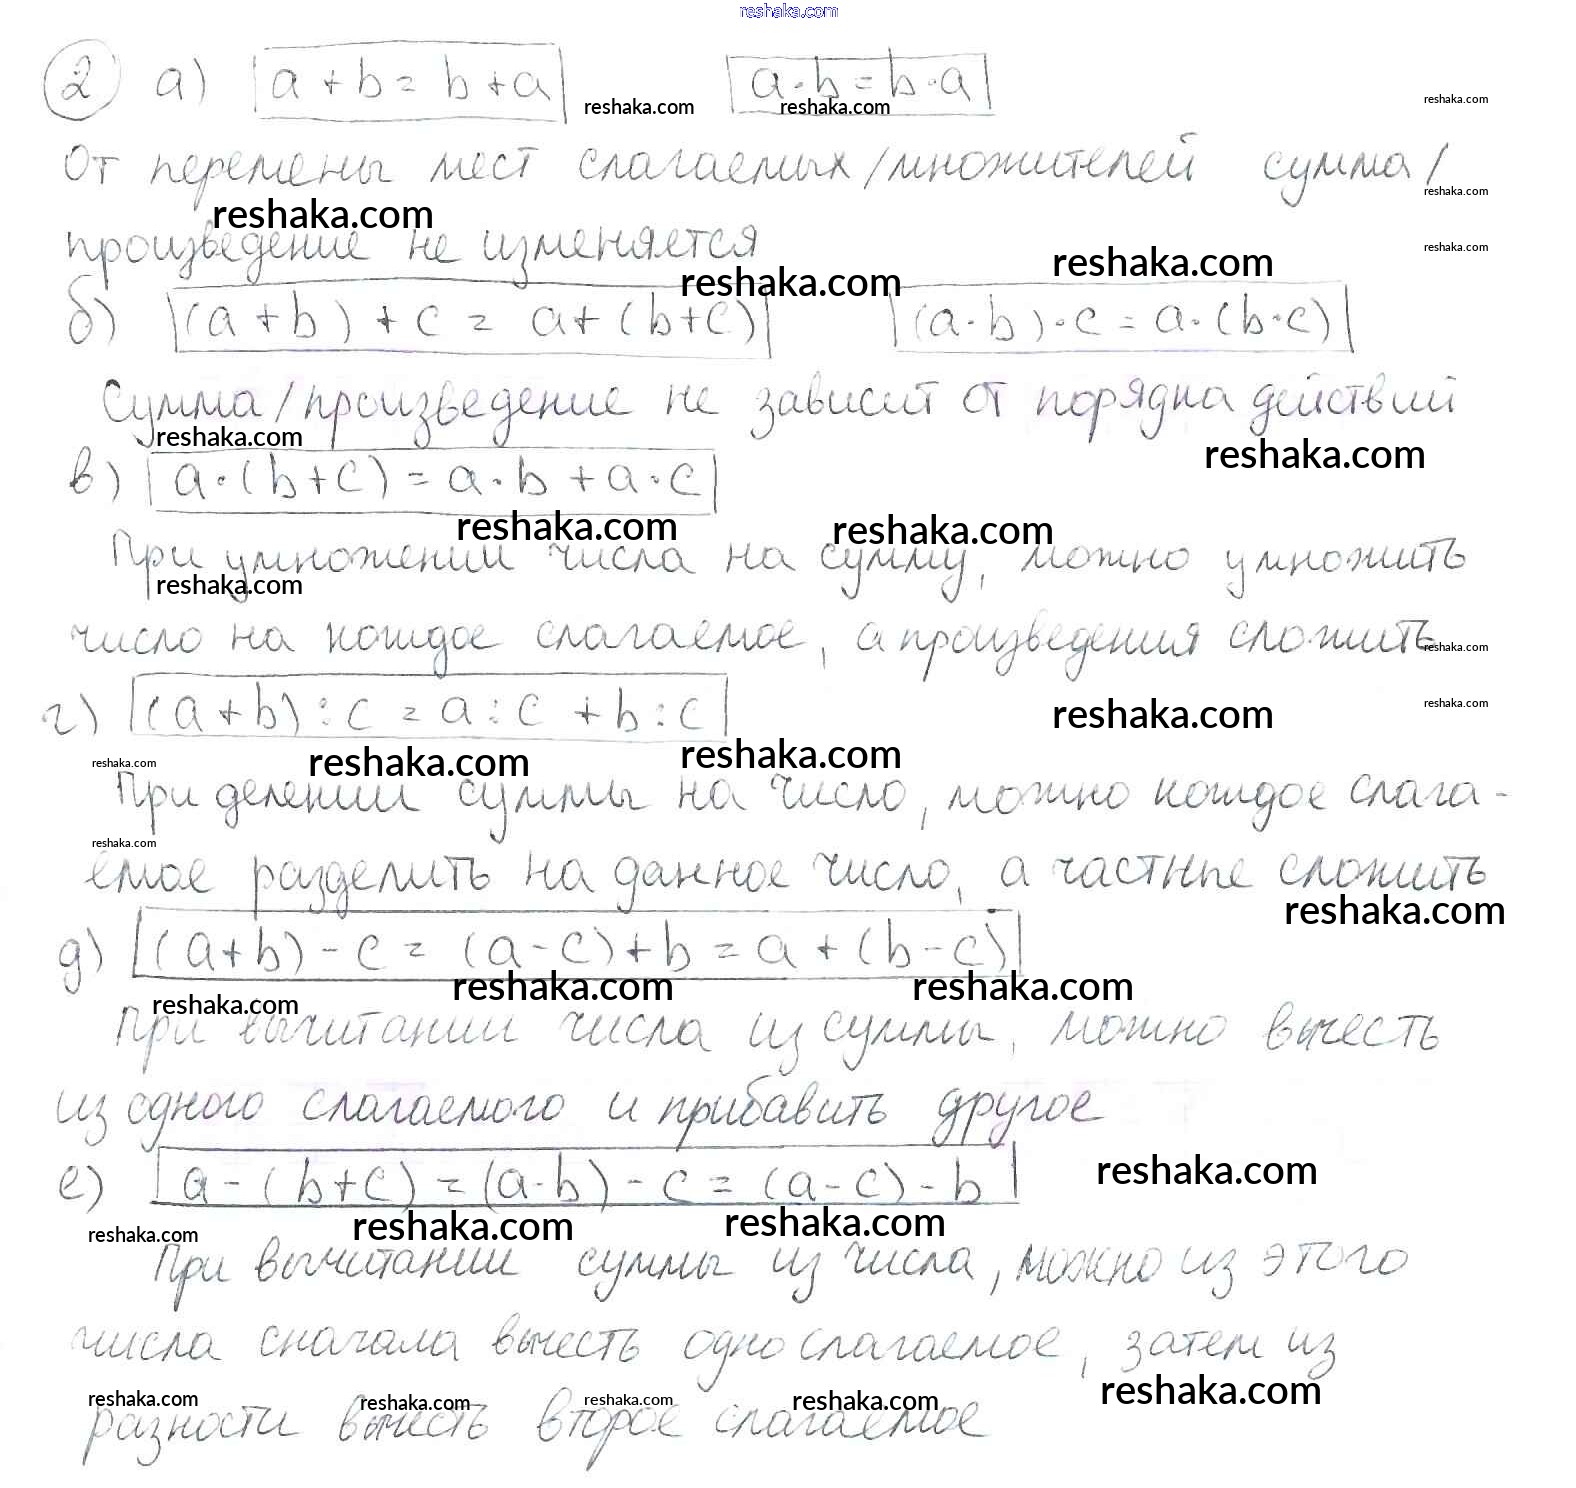 reshaka.com
2 а) a + b = b + a a · b = b · a
reshaka.com reshaka.com reshaka.com
От перемены мест слагаемых/множителей сумма/
reshaka.com reshaka.com
произведение не изменяется
reshaka.com reshaka.com reshaka.com
б) (a + b) + c = a + (b + c) (a · b) · c = a · (b · c)
Сумма/произведение не зависит от порядка действий
reshaka.com reshaka.com
в) a · (b + c) = a · b + a · c
reshaka.com reshaka.com
При умножении числа на сумму, можно умножить
reshaka.com
число на каждое слагаемое, а произведения сложить
reshaka.com
г) (a + b) : c = a : c + b : c
reshaka.com reshaka.com
reshaka.com reshaka.com reshaka.com
При делении суммы на число, можно каждое слага-
reshaka.com
емое разделить на данное число, а частные сложить
reshaka.com
д) (a + b) - c = (a - c) + b = a + (b - c)
reshaka.com reshaka.com reshaka.com
При вычитании числа из суммы, можно вычесть
из одного слагаемого и прибавить другое
е) a - (b + c) = (a - b) - c = (a - c) - b
reshaka.com
reshaka.com reshaka.com reshaka.com
При вычитании суммы из числа, можно из этого
числа сначала вычесть одно слагаемое, затем из
reshaka.com reshaka.com reshaka.com reshaka.com reshaka.com
разности вычесть второе слагаемое